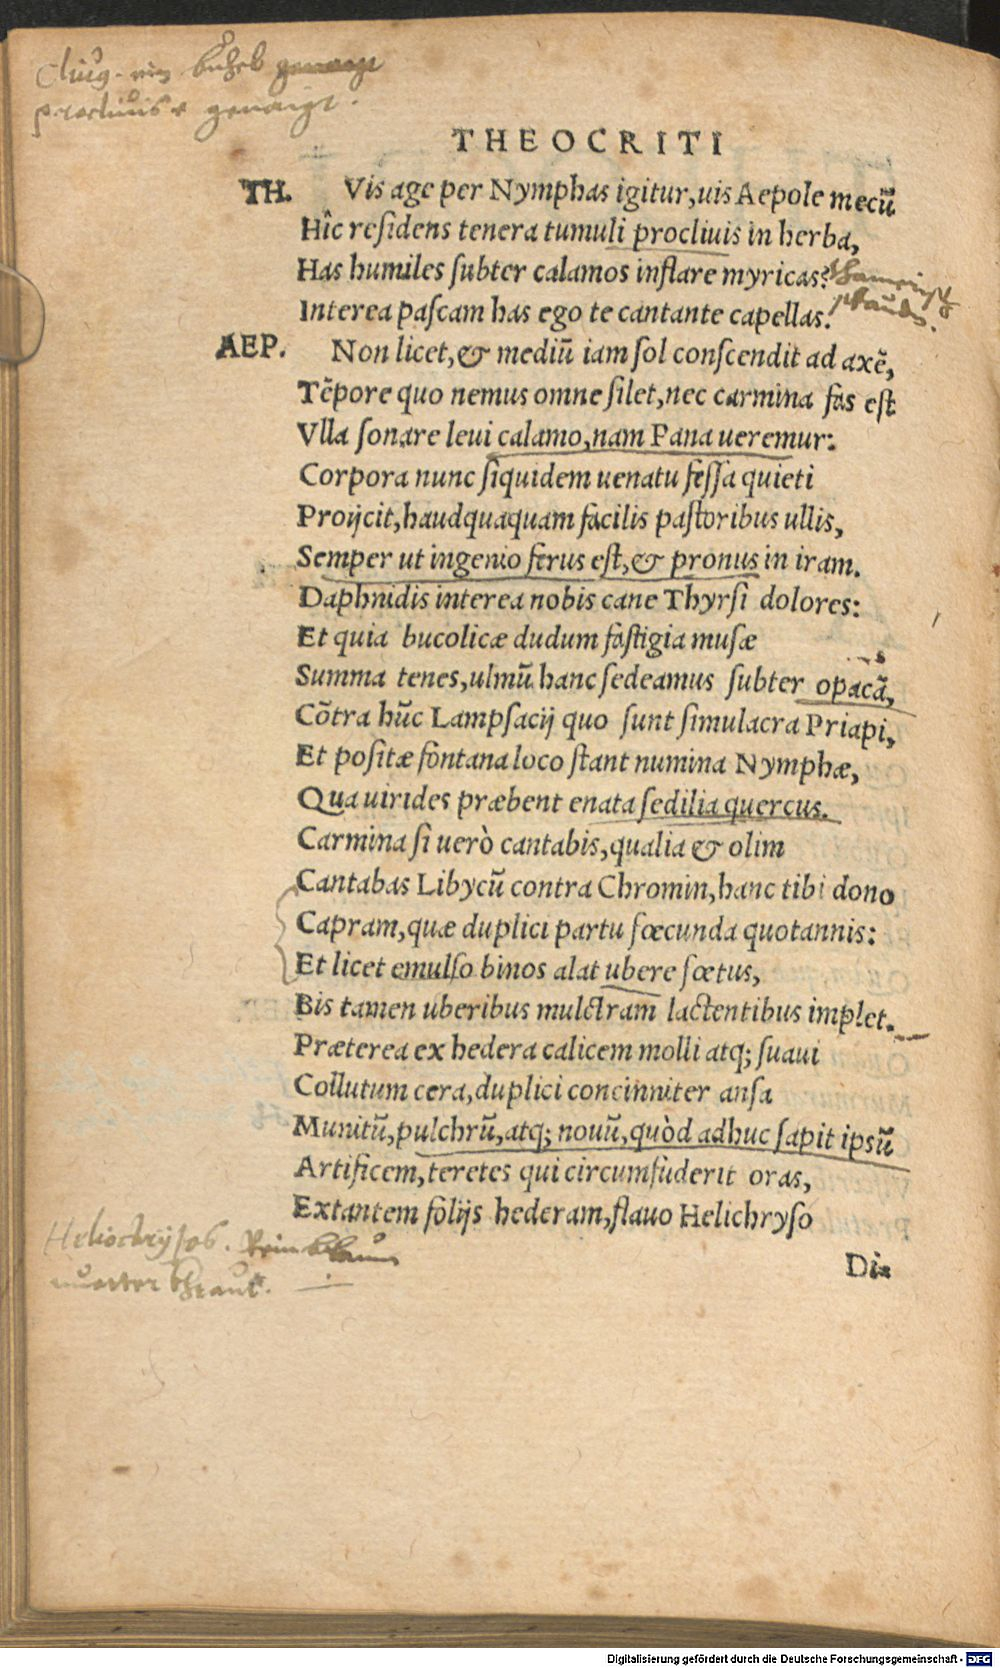 THEOCRITI
TH. Vis age per Nymphas igitur,uis Aepole mecū
Hîc reſidens tenera tumuli procliuis in herba,
Has humiles ſubter calamos inflare myricas?
Interea paſcam has ego te cantante capellas.
AEP. Non licet,& mediū iam ſol conſcendit ad axē,
Tēpore quo nemus omne ſilet,nec carmina fas eſt
Vlla ſonare leui calamo,nam Pana ueremur:
Corpora nunc ſiquidem uenatu feſſa quieti
Proijcit,haudquaquam facilis paſtoribus ullis,
Semper ut ingenio ferus eſt,& pronus in iram.
Daphnidis interea nobis cane Thyrſi dolores:
Et quia bucolicæ dudum faſtigia muſæ
Summa tenes,ulmū hanc ſedeamus ſubter opacā,
Cōtra hūc Lampſacij quo ſunt ſimulacra Priapi,
Et poſitæ fontana loco ſtant numina Nymphæ,
Qua uirides præbent enata ſedilia quercus.
Carmina ſi uerò cantabis,qualia & olim
Cantabas Libycū contra Chromin,hanc tibi dono
Capram,quæ duplici partu fœcunda quotannis:
Et licet emulſo binos alat ubere fœtus,
Bis tamen uberibus mulctram lactentibus implet.
Præterea ex hedera calicem molli atq; ſuaui
Collutum cera,duplici concinniter anſa
Munitū,pulchrū,atq; nouū,quòd adhuc ſapit ipsū
Artificem,teretes qui circumfuderit oras,
Extantem folijs hederam,flauo Helichryſo
Heliochryſos.
Di-
Digitalisierung gefördert durch die Deutsche Forschungsgemeinschaft - DFG